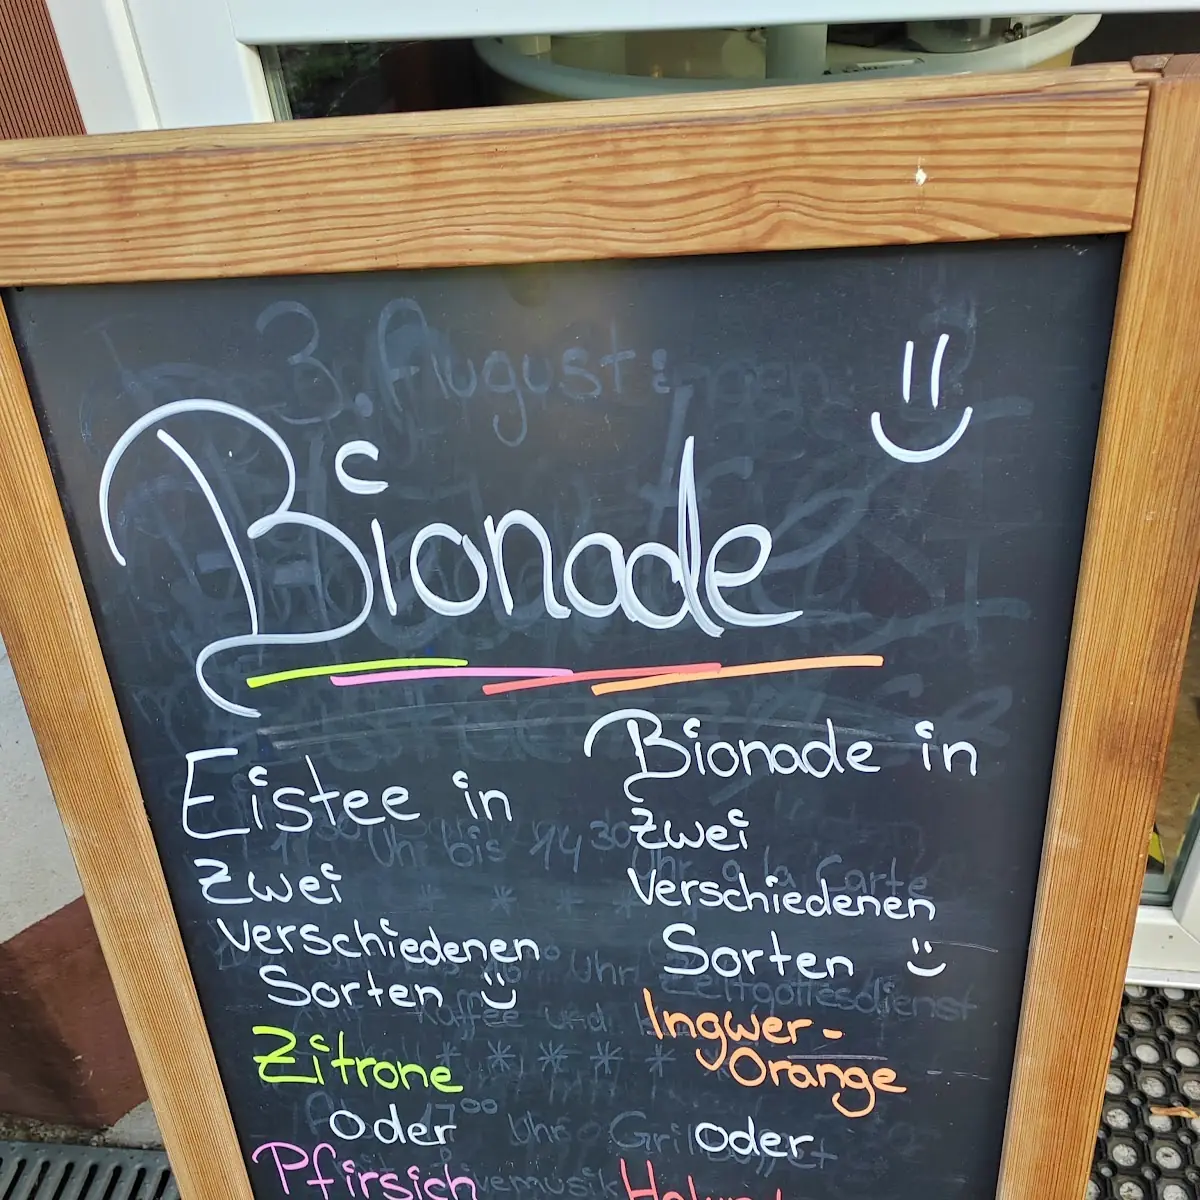 3. August:
Bionade
Eistee in
zwei
verschiedenen
Sorten
Zitrone
oder
Pfirsich
Bionade in
zwei
verschiedenen
Sorten
Ingwer-
Orange
oder
Uhr bis 14 30
Uhr a la Carte
Uhr
Zeltgottesdienst
Kaffee und
17 00 Uhr